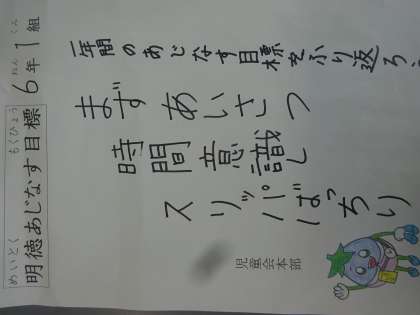 めいとく もくひょう ねん くみ
明徳あじなす目標 6年1組
一年間のあじなす目標をふり返ろう
まず あいさつ
時間意識し
スリッパばっちり
児童会本部